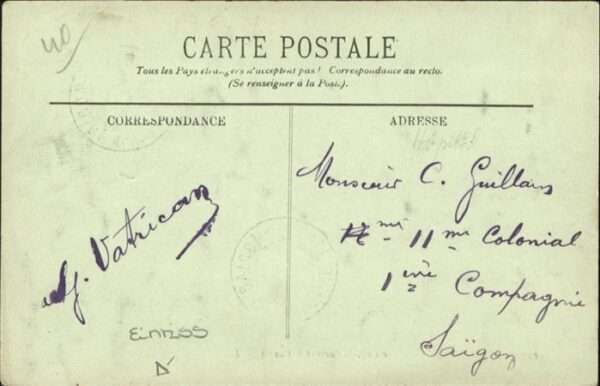 40
CARTE POSTALE
Tous les Pays étrangers n'acceptent pas la Correspondance au recto.
(Se renseigner à la Poste).
CORRESPONDANCE
ADRESSE
Monsieur C. Guillaus
11me Colonial
1ère Compagnie
Saïgon
J. Vatrican